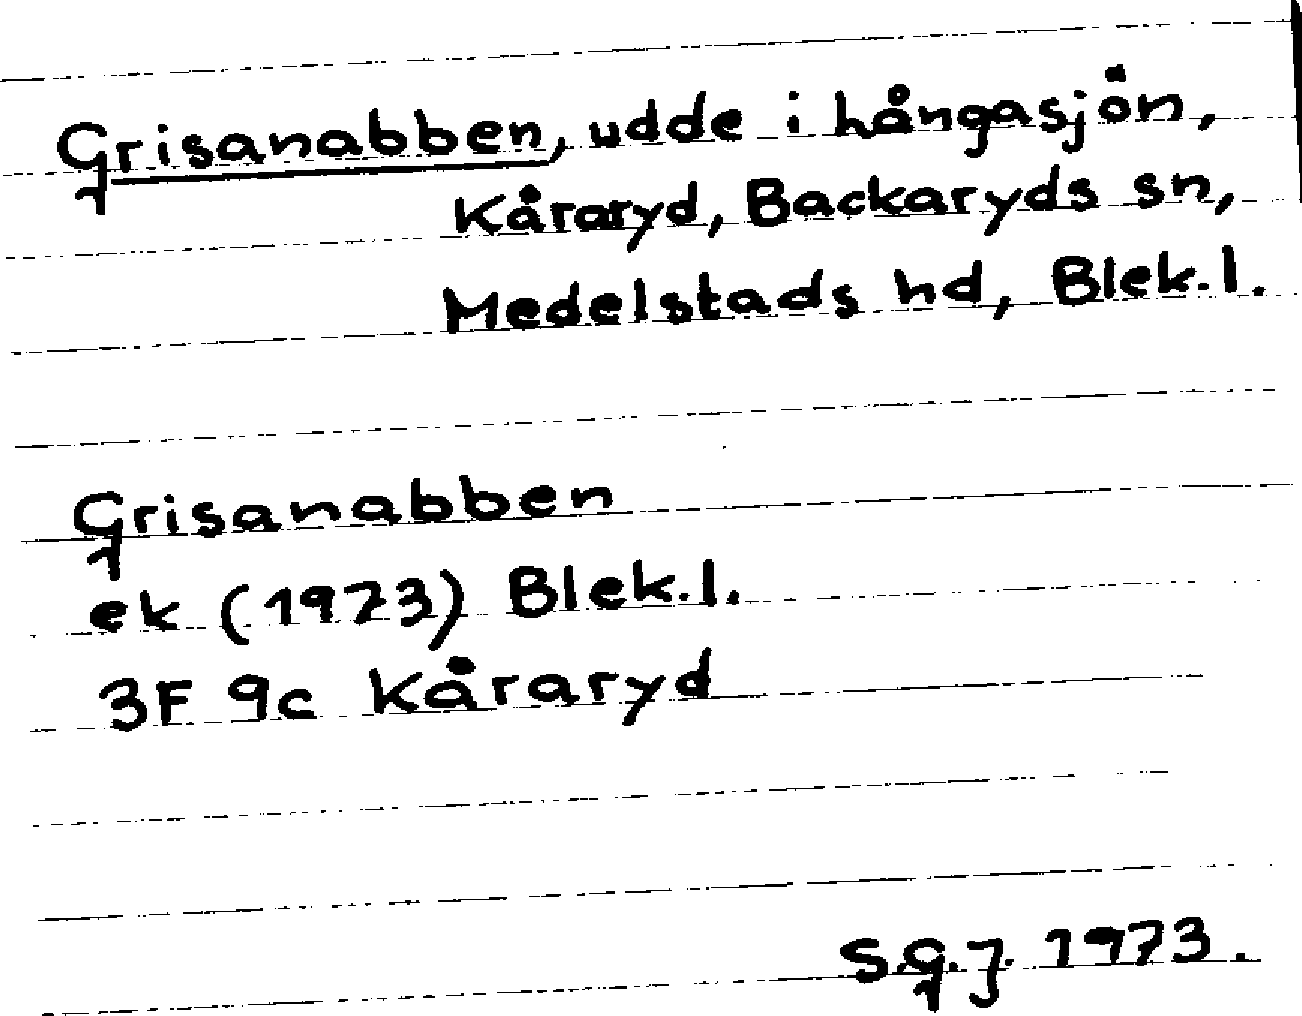 Grisanabben, udde i hångasjön,
Kåraryd, Backaryds sn,
Medelstads hd, Blek.l.
Grisanabben
ek (1973) Blek.l.
3F 9c Kåraryd
S.G.J. 1973.